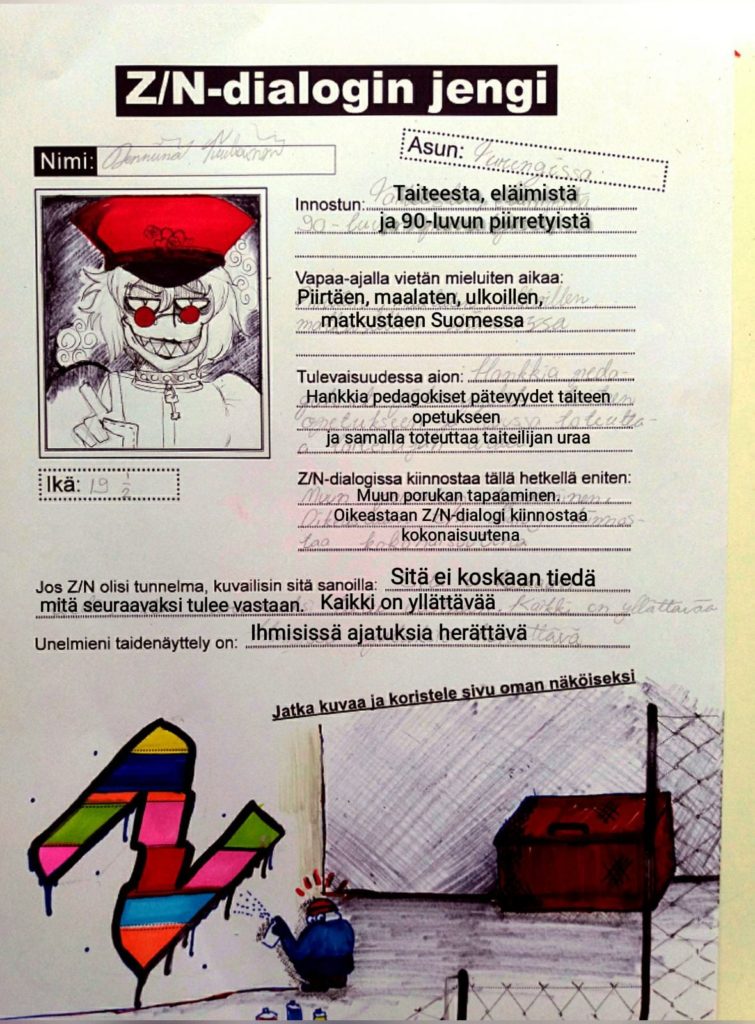 Z/N-dialogin jengi
Nimi:
Asun:
Innostun: Taiteesta, eläimistä
ja 90-luvun piirretyistä
Vapaa-ajalla vietän mieluiten aikaa:
Piirtäen, maalaten, ulkoillen,
matkustaen Suomessa
Tulevaisuudessa aion:
Hankkia pedagokiset pätevyydet taiteen
opetukseen
ja samalla toteuttaa taiteilijan uraa
Ikä: 19 1/2
Z/N-dialogissa kiinnostaa tällä hetkellä eniten:
Muun porukan tapaaminen.
Oikeastaan Z/N-dialogi kiinnostaa
kokonaisuutena
Jos Z/N olisi tunnelma, kuvailisin sitä sanoilla: Sitä ei koskaan tiedä
mitä seuraavaksi tulee vastaan. Kaikki on yllättävää
Unelmieni taidenäyttely on: Ihmisissä ajatuksia herättävä
Jatka kuvaa ja koristele sivu oman näköiseksi